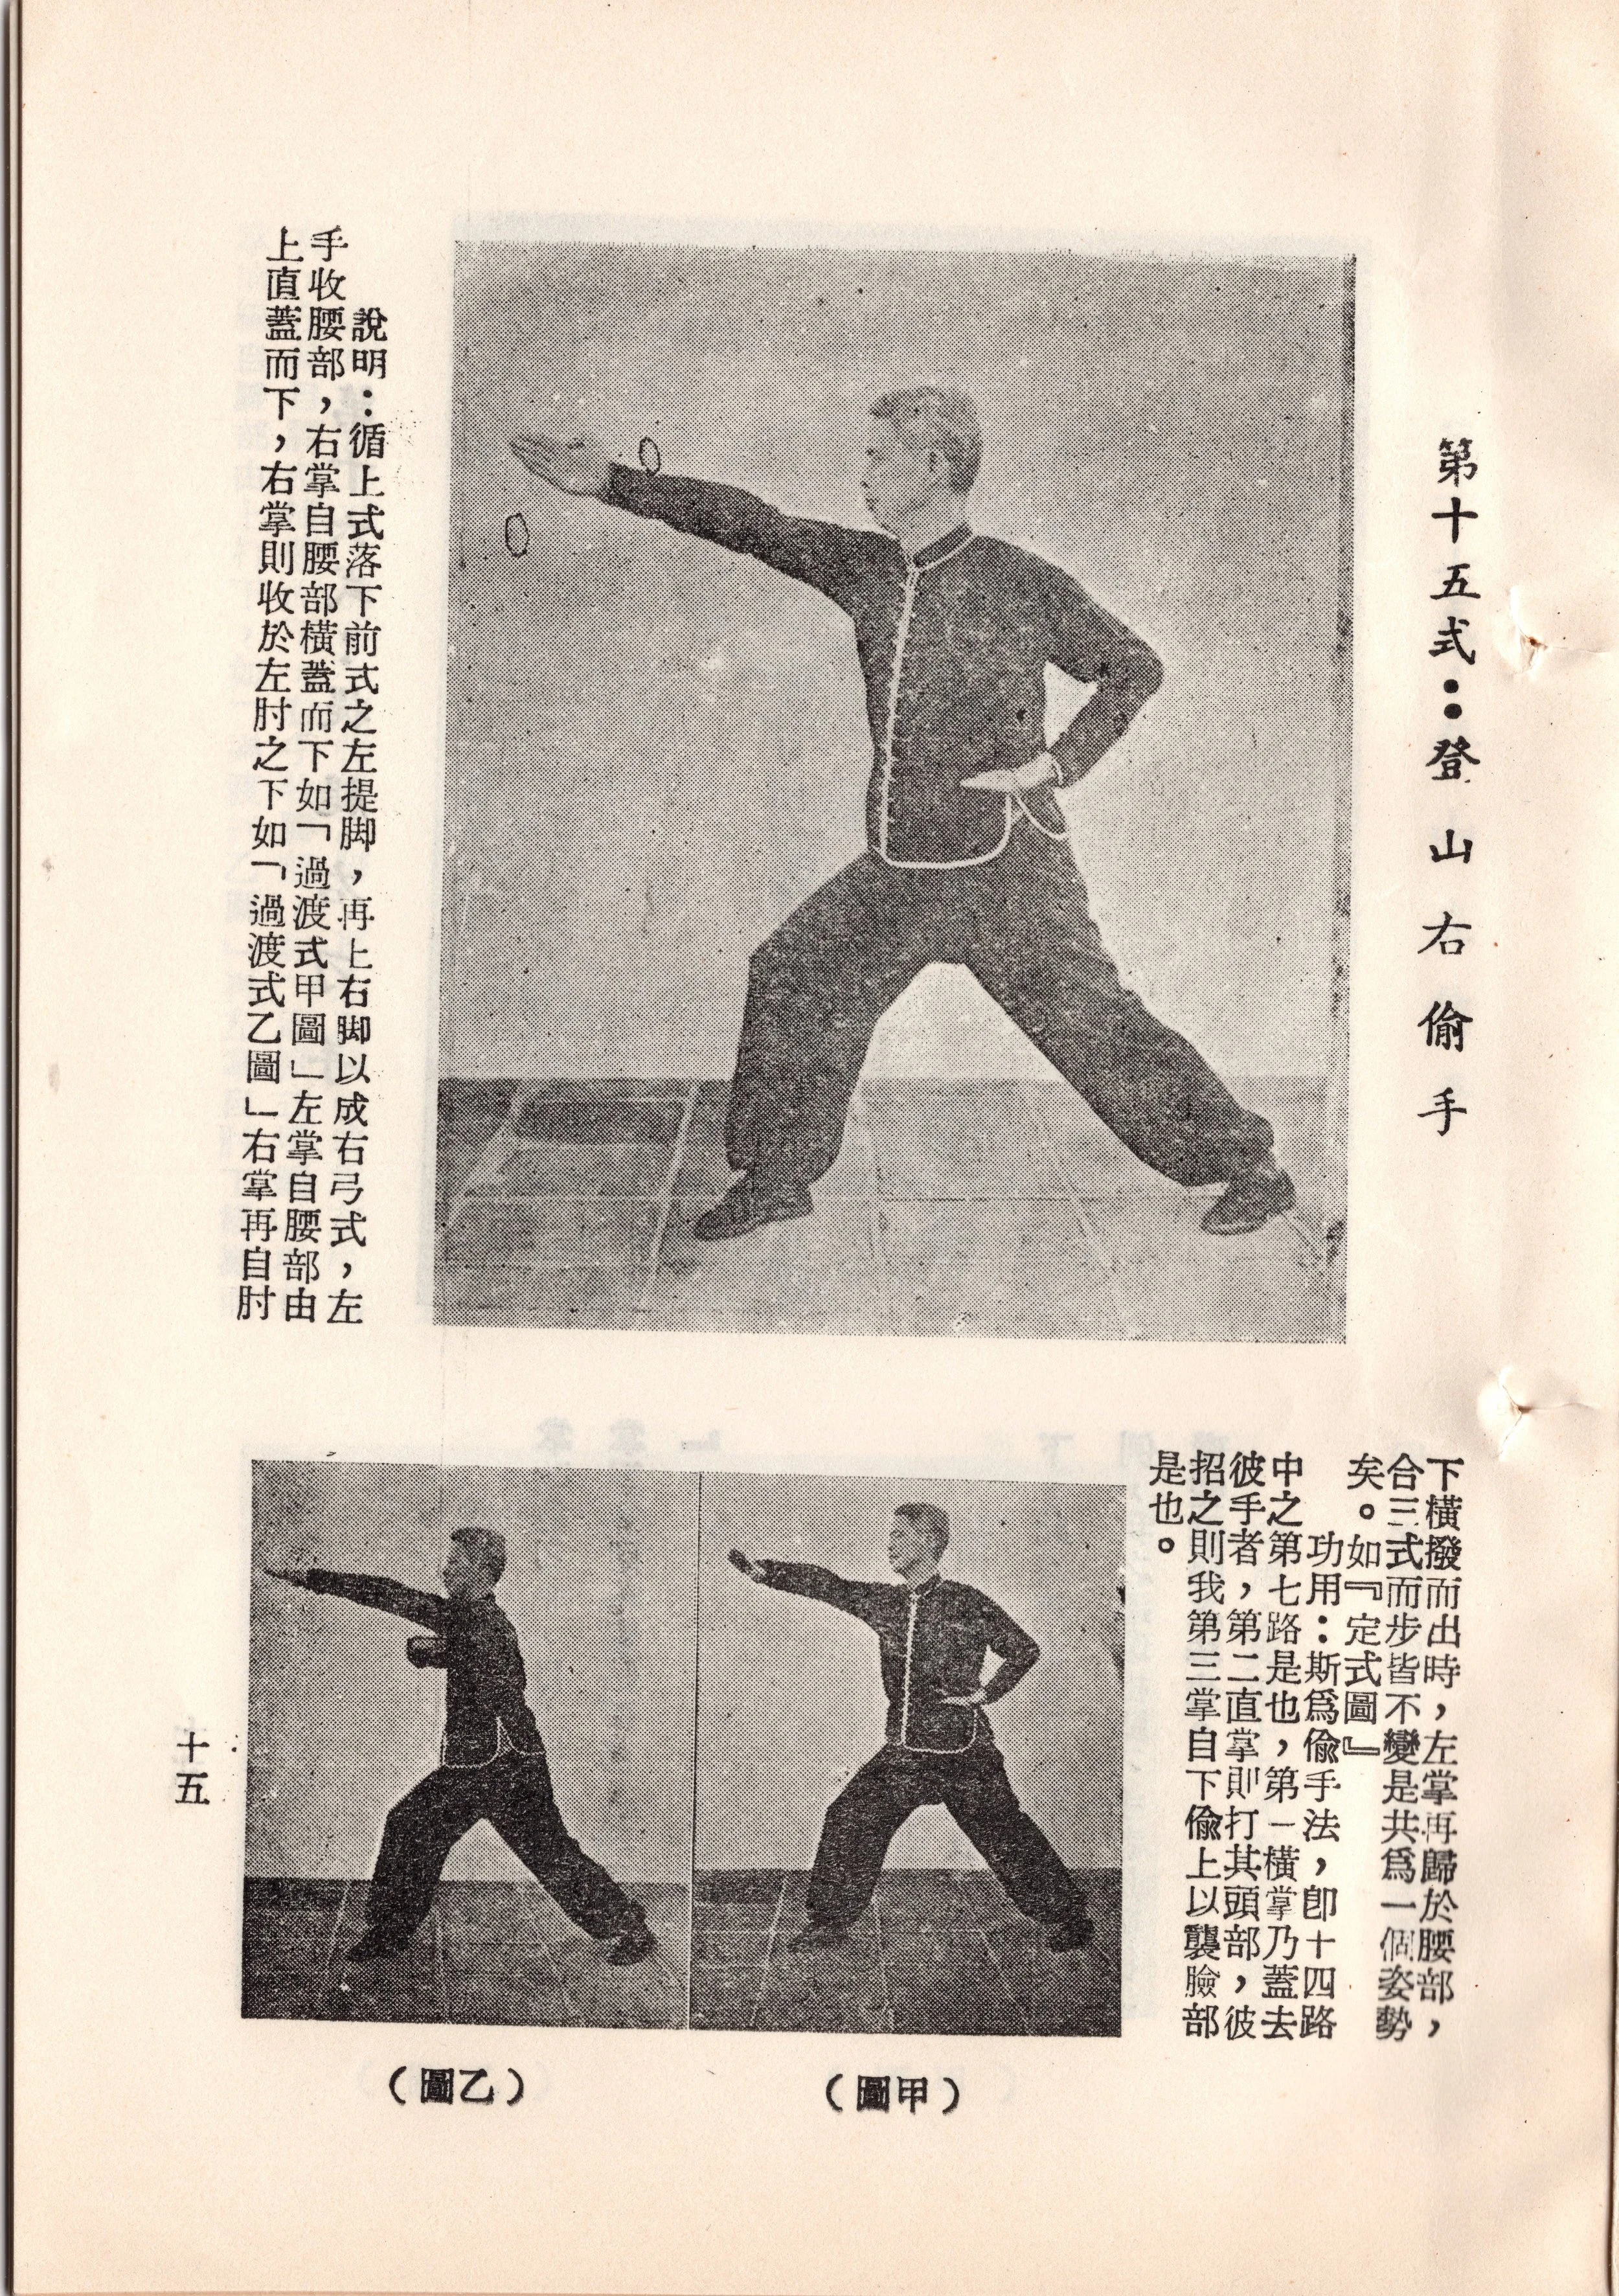 第十五式：登山右偷手
說明：循上式落下前式之左提脚，再上右脚以成右弓式，左
手收腰部，右掌自腰部橫蓋而下如「過渡式甲圖」左掌自腰部由
上直蓋而下，右掌則收於左肘之下如「過渡式乙圖」右掌再自肘
下橫撥而出時，左掌再歸於腰部，
合三式而步皆不變是共爲一個姿勢
矣。如『定式圖』
功用：斯爲偸手法，卽十四路
中之第七路是也，第一橫掌乃蓋去
彼手者，第二直掌則打其頭部，彼
招之則我第三掌自下偸上以襲臉部
是也。
（甲圖）
（乙圖）
十五